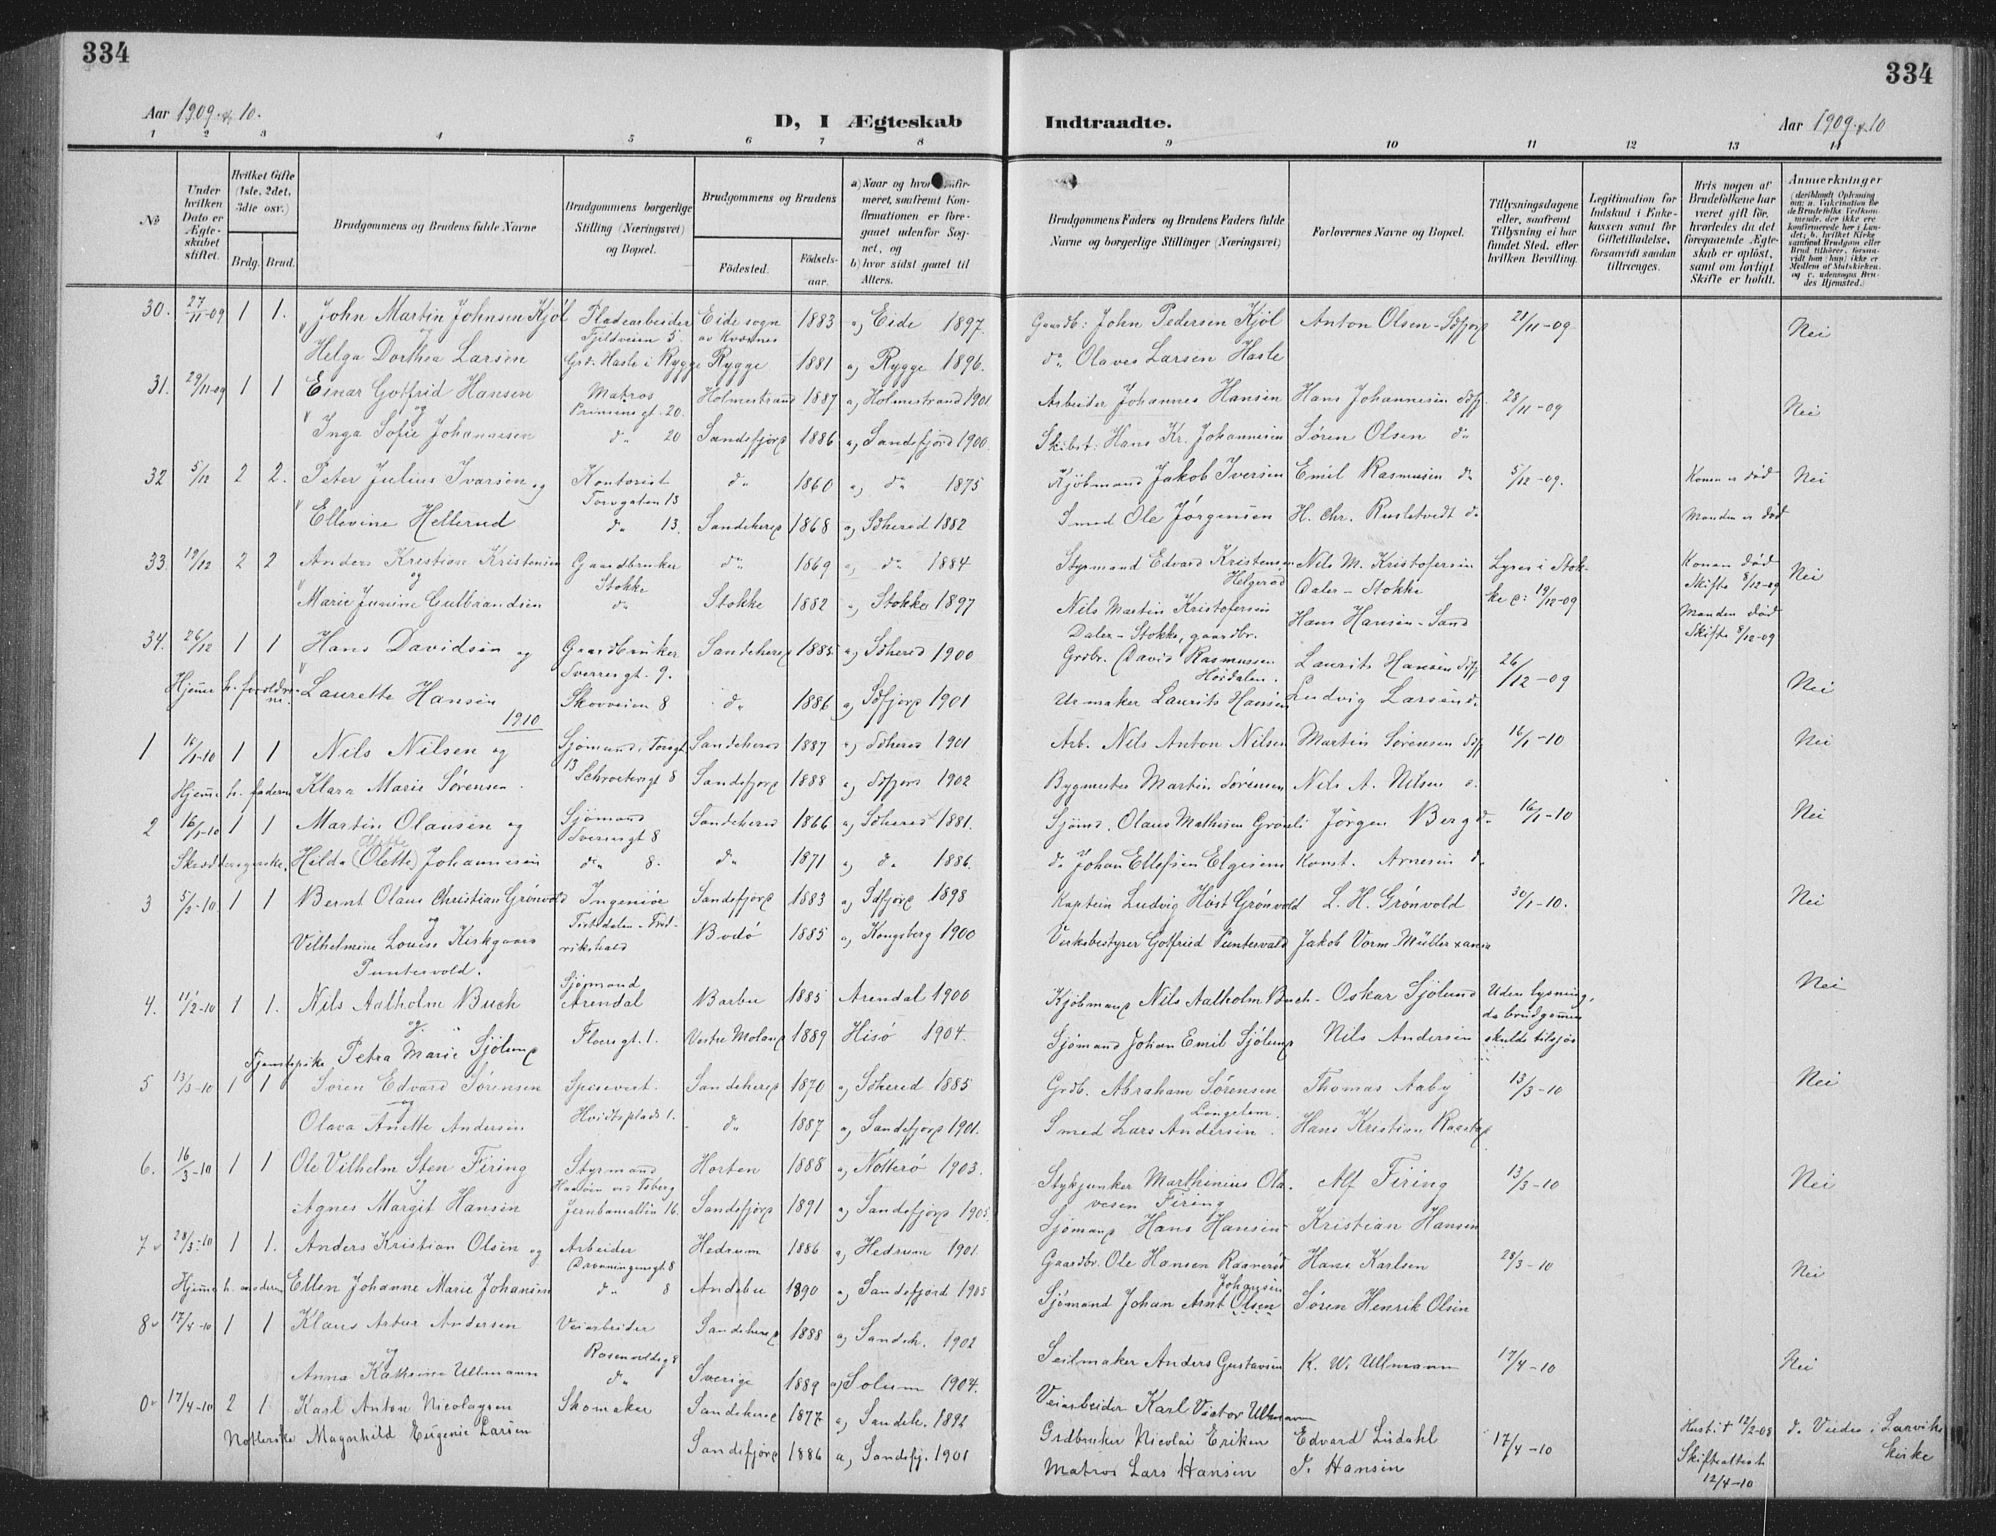 334
Aar 1909 & 10.
D, I Ægteskab
Indtraadte.
Aar 1909 & 10
334
1 2 3 4 5 6 7 8 9 10 11 12 13 14
№
Under hvilken Dato er Ægteskabet stiftet.
Hvilket Gifte (1ste, 2det, 3die osv.)
Brdg. Brud.
Brudgommens og Brudens fulde Navne
Brudgommens borgerlige Stilling (Næringsvei) og Bopæl.
Brudgommens og Brudens
Fødested.
Fødselsaar.
a) Naar og hvor konfirmeret, saafremt Konfirmationen er foregaaet udenfor Sognet, og
b) hvor sidst gaaet til Alters.
Brudgommens Faders og Brudens Faders fulde Navne og borgerlige Stillinger (Næringsvei)
Forlovernes Navne og Bopæl.
Tillysningsdagene eller, saafremt Tillysning ei har fundet Sted, efter hvilken Bevilling.
Legitimation for Indskud i Enkekassen samt for Giftetilladelse, forsaavidt saadan tiltrænges.
Hvis nogen af Brudefolkene har været gift før, hvorledes da det foregaaende Ægteskab er opløst, samt om lovligt Skifte er holdt.
Anmerkninger
30. 27/11-09 1 1. John Martin Johnsen Kjøl Pladearbeider Eide sogn 1883 a) Eide 1897. Gaardb: John Pedersen Kjøl Anton Olsen - Sdfjord 21/11-09 Nei
og Fjeldveien 5. av Kværnes
Helga Dorthea Larsen Grd. Hasle i Rygge Rygge 1881 a) Rygge 1896. do Olaves Larsen Hasle
31. 29/11-09 1 1 Einar Gotfrid Hansen Matros Holmestrand 1887 a) Holmestrand 1901 Arbeider Johannes Hansen Hans Johannesen Sdfj. 28/11-09 Nei
og Prinsensgt. 20.
Inga Sofie Johannesen do 20 Sandefjord 1886 a) Sandefjord 1900 Skibst: Hans Kr. Johannesen Søren Olsen do
32 5/12 2 2. Peter Julius Ivarsen og Kontorist do 1860 a) do 1875 Kjøbmand Jakob Iversen Emil Rasmusen do 5/12-09. Konen er død Nei
Torvgaten 13
Ellevine Hellerud do 13. Sandeherred 1868 a) Sdherred 1882 Smed Ole Jørgensen H. Chr. do Manden er død
33. 19/12 2 2 Anders Kristian Kristensen Gaardbruker do 1869 a) do 1884 Styrmand Edvard Kristensen Nils M. Kristofersen Lyses i Stok- Konen død Nei
og Stokke Helgerød Daler - Stokke ke 19/12-09 Skifte 8/12-09
Marie Jusine Gulbrandsen do Stokke 1882 a) Stokke 1897 Nils Martin Kristofersen Hans Hansen - Sand Manden død
Daler - Stokke, gaardbr. Skifte 8/12-09
34. 26/12 1 1 Hans Davidsen og Gaardbruker Sandeherred 1885 a) Sdherred 1900 Grdbr. David Rasmussen Laurits Hansen Sdfj. 26/12-09 Nei
Sverresgt. 9. Høidalen.
Hjeme h. foreldrene. Laurette Hansen Skovveien 8 do 1886 a) Sdfjord 1901 Urmaker Laurits Hansen Ludvig Larsen do
1910
1 16/1-10 1 1 Nils Nilsen og Sjømand, Torvgt. Sandeherred 1887 a) Sdherred 1901 Arb. Nils Anton Nilsen Martin Sørensen Sdfj. 16/1-10 Nei
Hjeme h. faderen Klara Marie Sørensen. 13 Schrøtersgt 8 Sandefjord 1888 a) Sdfjord 1902 Bygmester Martin Sørensen Nils A. Nilsen
2 16/1-10 1 1 Martin Olausen og Sjømand Sandeherred 1866 a) Sdherred 1881. Sjømd. Olaus Mathisen Jørgen Berg do 16/1-10 Nei
Sverresgt 8
Hilda (Olette) Johannesen do 8. do 1871 a) do 1886. do Johan Ellefsen Konst. Arnesen do
3 5/2-10 1 1 Bernt Olaus Christian Grønvold Ingeniør Sandefjord 1883 a) Sdfjord 1898 Kaptein Ludvig Høst Grønvold L. H. Grønvold 30/1-10. Nei
og Tistedalen - Fred-
Vilhelmine Louise Kirkgaard rikshald Bodø 1885 a) Kongsberg 1900 Verksbestyrer Gotfried Puntervold Jakob Vorm-Müller
Puntervold.
4. 11/2-10 1 1. Nils Aalholm Buch Sjømand Arendal Barbu 1885 Arendal 1900 Kjøbmand Nils Aalholm Buch - Oskar Sjølund Uden lysning, Nei
og da brudgommen
Tjenstepike Petra Marie Sjølund Floersgt. 1. Vestre Moland 1889 Hisø 1904. Sjømand Johan Emil Sjølund Nils Andersen skulde tilsjøs
5 13/3-10 1 1 Søren Edvard Sørensen Spisevert. Sandeherred 1870 a) Sdherred 1885 Grdb. Abraham Sørensen Thomas Aaby 13/3-10 Nei
og
Olava Anette Andersen Hvidtsplads 1. do 1887 a) Sandefjord 1901. Smed Lars Andersen. Hans Kristian Raastad
6. 16/3-10 1 1 Ole Vilhelm Sten Firing Styrmand Horten 1888 a) Nøtterø 1903. Stykjunker Marthinius Ola- Alf Firing 13/3-10 Nei
og vesen Firing
Agnes Margit Hansen Jernbanealleen 16. Sandefjord 1891 a) Sandefjord 1905 Sjømand Hans Hansen - Kristian Hansen
7 28/3-10 1 1. Anders Kristian Olsen og Arbeider Hedrum 1886 a) Hedrum 1901. Gaardbr. Ole Hansen Raanerød Hans Karlsen 28/3-10 Nei
Dronningensgt 8
Hjeme h. moderen Ellen Johanne Marie Johansen do 8 Andebu 1890 a) Sandefjord 1905 Sjømand Johan Arnt Olsen Johansen Søren Henrik Olsen
8 17/4-10 1 1 Klaus Artur Andersen Veiarbeider Sandeherred 1888 a) Sandeh. 1902 Seilmaker Anders Gustavsen K. W. Ullmann 17/4-10 Nei
og Rosenvoldsg 8
Anna Kathrine Ullmann do Sverige 1889 a) Solum 1904. Veiarbeider Karl Victor Ullmann
17/4-10 2 1 Karl Anton Nicolaysen Skomaker Sandeherred 1877 a) Sandeh. 1892 Grdbruker Nicolai Eriksen Edvard Lisdahl 17/4-10 Hust. † 12/2-08
Magnhild Eugenie Larsen Sandefjord 1886 a) Sandefj. 1901 Matros Lars Hansen J. Hansen Skifteattest 12/4-10 Larviks kirke